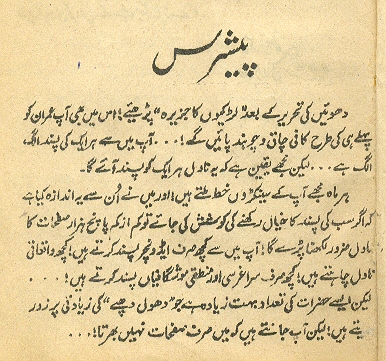 پیشرس
دھوئیں کی تحریر کے بعد "لڑکیوں کا جزیرہ" پڑھیئے! اس میں بھی آپ عمران کو
پہلے ہی کی طرح کافی چاق و چوبند پائیں گے!... آپ میں سے ہر ایک کی پسند الگ،
الگ ہے... لیکن مجھے یقین ہے کہ یہ ناول ہر ایک کو پسند آئے گا۔
ہر ماہ مجھے آپ کے سینکڑوں خط ملتے ہیں! اور میں نے اُن سے یہ اندازہ کیا ہے
کہ اگر سب کی پسند کا خیال رکھنے کی کوشش کی جائے تو کم از کم پانچ ہزار صفحات کا
ناول ضرور لکھنا پڑے گا! آپ میں سے کچھ صرف ایڈونچر پسند کرتے ہیں! کچھ واقعاتی
ناول چاہتے ہیں! کچھ صرف سراغرسی اور منطقی موشگافیاں پسند کرتے ہیں!...
لیکن ایسے حضرات کی تعداد بہت زیادہ ہے جو "دھول دھپے" کی زیادتی پر زور
دیتے ہیں! لیکن آپ جانتے ہیں کہ میں صرف صفحات نہیں بھرتا!...